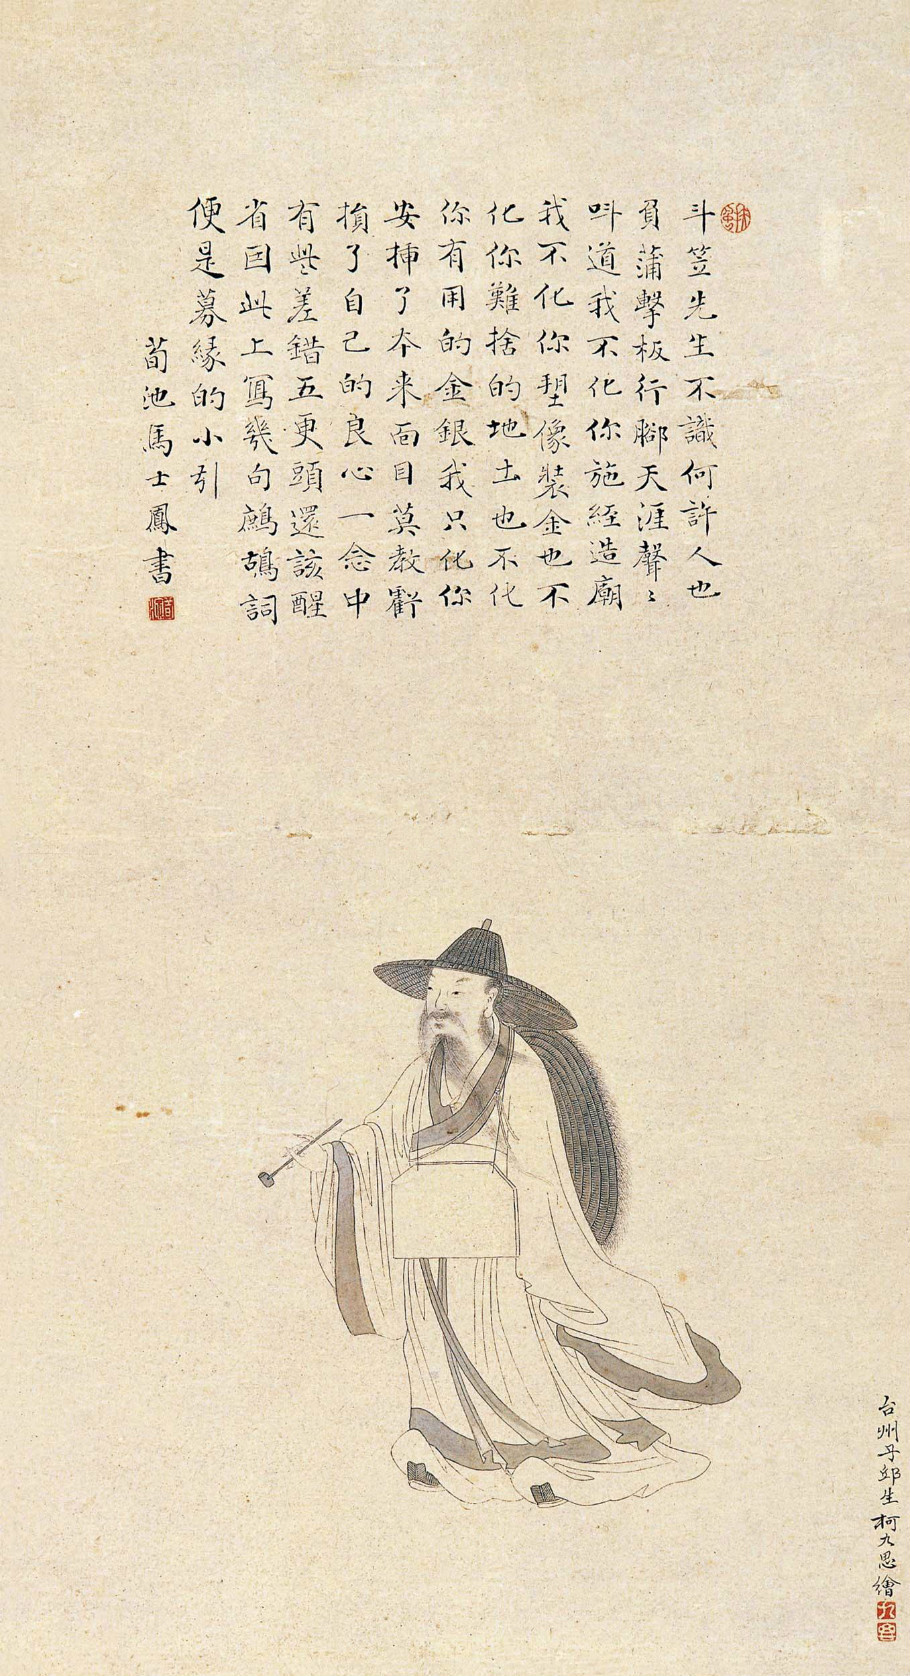 斗笠先生不識何許人也
負蒲擊板行腳天涯聲〻
叫道我不化你施經造廟
我不化你塑像裝金也不
化你難捨的地土也不化
你有用的金銀我只化你
安揷了本来面目莫教虧
損了自己的良心一念中
有些差錯五更頭還該醒
省因此上寫幾句鷓鴣詞
便是募緣的小引
荀池馬士鳳書
台州丹邱生柯九思繪